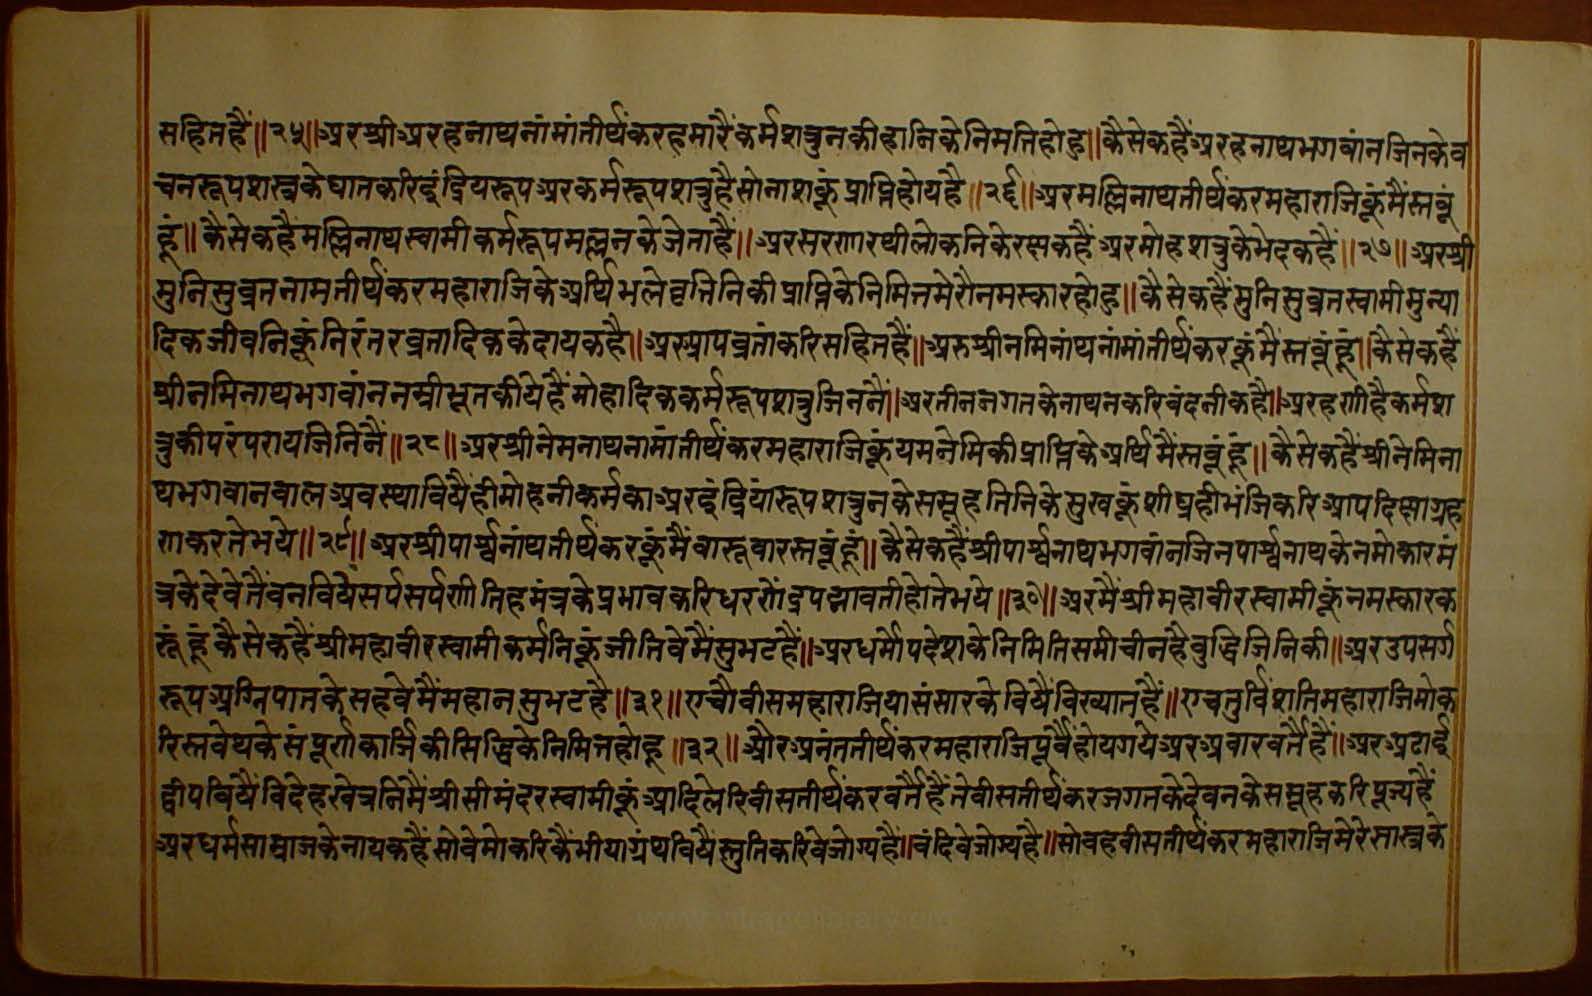 सहितहैं॥२५॥अरश्रीअरहनाथनांमांतीर्थंकरहमारैंकर्मशत्रुनकीहानिकेनिमत्तिहोहु॥कैसेकहैंअरहनाथभगवांनजिनकेव
चनरूपशस्त्रकेघातकरिइंद्रियरूपअरकर्मरूपशत्रुहैसोनाशकूंप्राप्तिहोयहै॥२६॥अरमल्लिनाथतीर्थंकरमहाराजिकूंमैंस्तवूं
हूं॥कैसेकहैंमल्लिनाथस्वामीकर्मरूपमल्लनकेजेताहैं॥अरसरणारथीलोकनिकेरक्षकहैंअरमोहशत्रुकेभेदकहैं॥२७॥अरश्री
मुनिसुव्रतनामतीर्थंकरमहाराजिकेअर्थिभलेवृत्तिनिकीप्राप्तिकेनिमित्तमेरौनमस्कारहोहु॥कैसेकहैंमुनिसुव्रतस्वामीमुन्या
दिकजीवनिकूंनिरंतरव्रतादिककेदायकहै॥अरुआपव्रतांकरिसहितहैं॥अरुश्रीनमिनांथनांमांतीर्थंकरकूंमैंस्तवूंहूं॥कैसेकहैं
श्रीनमिनाथभगवांननम्रीभूतकीयेहैंमोहादिककर्मरूपशत्रुजिननैं॥अरतीनजगतकेनाथनकरिवंदनीकहै॥अरहणीहैकर्मश
त्रुकीपरंपरायजिनिनैं॥२८॥अरश्रीनेमनाथनामांतीर्थंकरमहाराजिकूंयमनेमिकीप्राप्तिकेअर्थिमैंस्तवूंहूं॥कैसेकहैंश्रीनेमिना
थभगवानबालअवस्थाविषैंहीमोहनीकर्मकाअरइंद्रियांरूपशत्रुनकेसमूहतिनिकेमुखकूंशीघ्रहीभंजिकरिआपदिक्षाग्रह
णकरतेभये॥२९॥अरश्रीपार्श्वनांथतीर्थंकरकूंमैंवारूवारस्तवूंहूं॥कैसेकहैंश्रीपार्श्वनाथभगवांनजिनपार्श्वनाथकेनमोकारमं
त्रकेदेवेतैंवनविषैसर्पसर्पणीतिहमंत्रकेप्रभावकरिधरणेंद्रपद्मावतीहोतेभये॥३०॥अरमैंश्रीमहावीरस्वामीकूंनमस्कारक
रूंहूंकैसेकहैंश्रीमहावीरस्वामीकर्मनिकूंजीतिवेमैंसुभटहैं॥अरधर्मोपदेशकेनिमितिसमीचीनहैबुद्धिजिनिकी॥अरउपसर्ग
रूपअग्निपातकेसहवेमैंमहानसुभटहै॥३१॥एचौवीसमहाराजियासंसारकेविषैंविख्यातहैं॥एचतुर्विंशतिमहाराजिमोक
रिस्तवेथकेसंपूर्णकार्जिकीसिद्धिकेनिमित्तहोहू॥३२॥औरअनंततीर्थंकरमहाराजिपूर्वैंहोयगयेअरअवारवर्त्तैहैं॥अरअढाई
द्वीपविषैंविदेहखेत्रनिमैंश्रीसीमंदरस्वामीकूंआदिलेरिवीसतीर्थंकरवर्त्तैहैंतेवीसतीर्थंकरजगतकेदेवनकेसमूहकरिपूज्यहैं
अरधर्मसाम्राजकेनायकहैंसोवेमोकरिकैंभीयाग्रंथविषैंस्तुतिकरिवेजोग्यहैं॥वंदिवेजोग्यहै॥सोवहवीसतीर्थंकरमहाराजिमेरेसास्त्रके